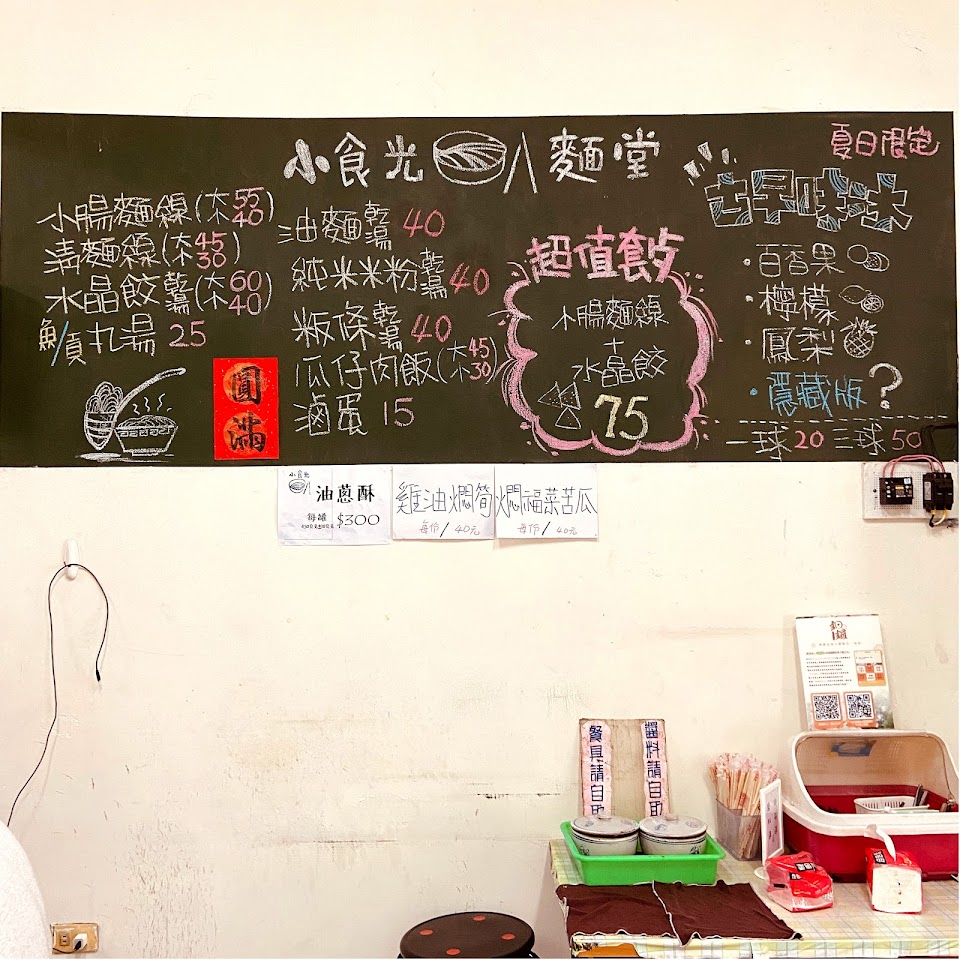 小食光 麵堂
小腸麵線(大55 小40)
清麵線(大45 小30)
水晶餃乾湯(大60 小40)
魚/貢丸湯25
圓滿
油麵乾湯40
純米米粉乾湯40
粄條乾湯40
瓜仔肉飯(大45 小30)
滷蛋15
超值套餐
小腸麵線
+
水晶餃
75
夏日限定
古早味冰
·百香果
·檸檬
·鳳梨
·隱藏版?
一球20 三球50
小食光
油蔥酥
每罐 $300
雞油燜筍
每份/40元
燜福菜苦瓜
每份/40元
餐具請自取
醬料請自取